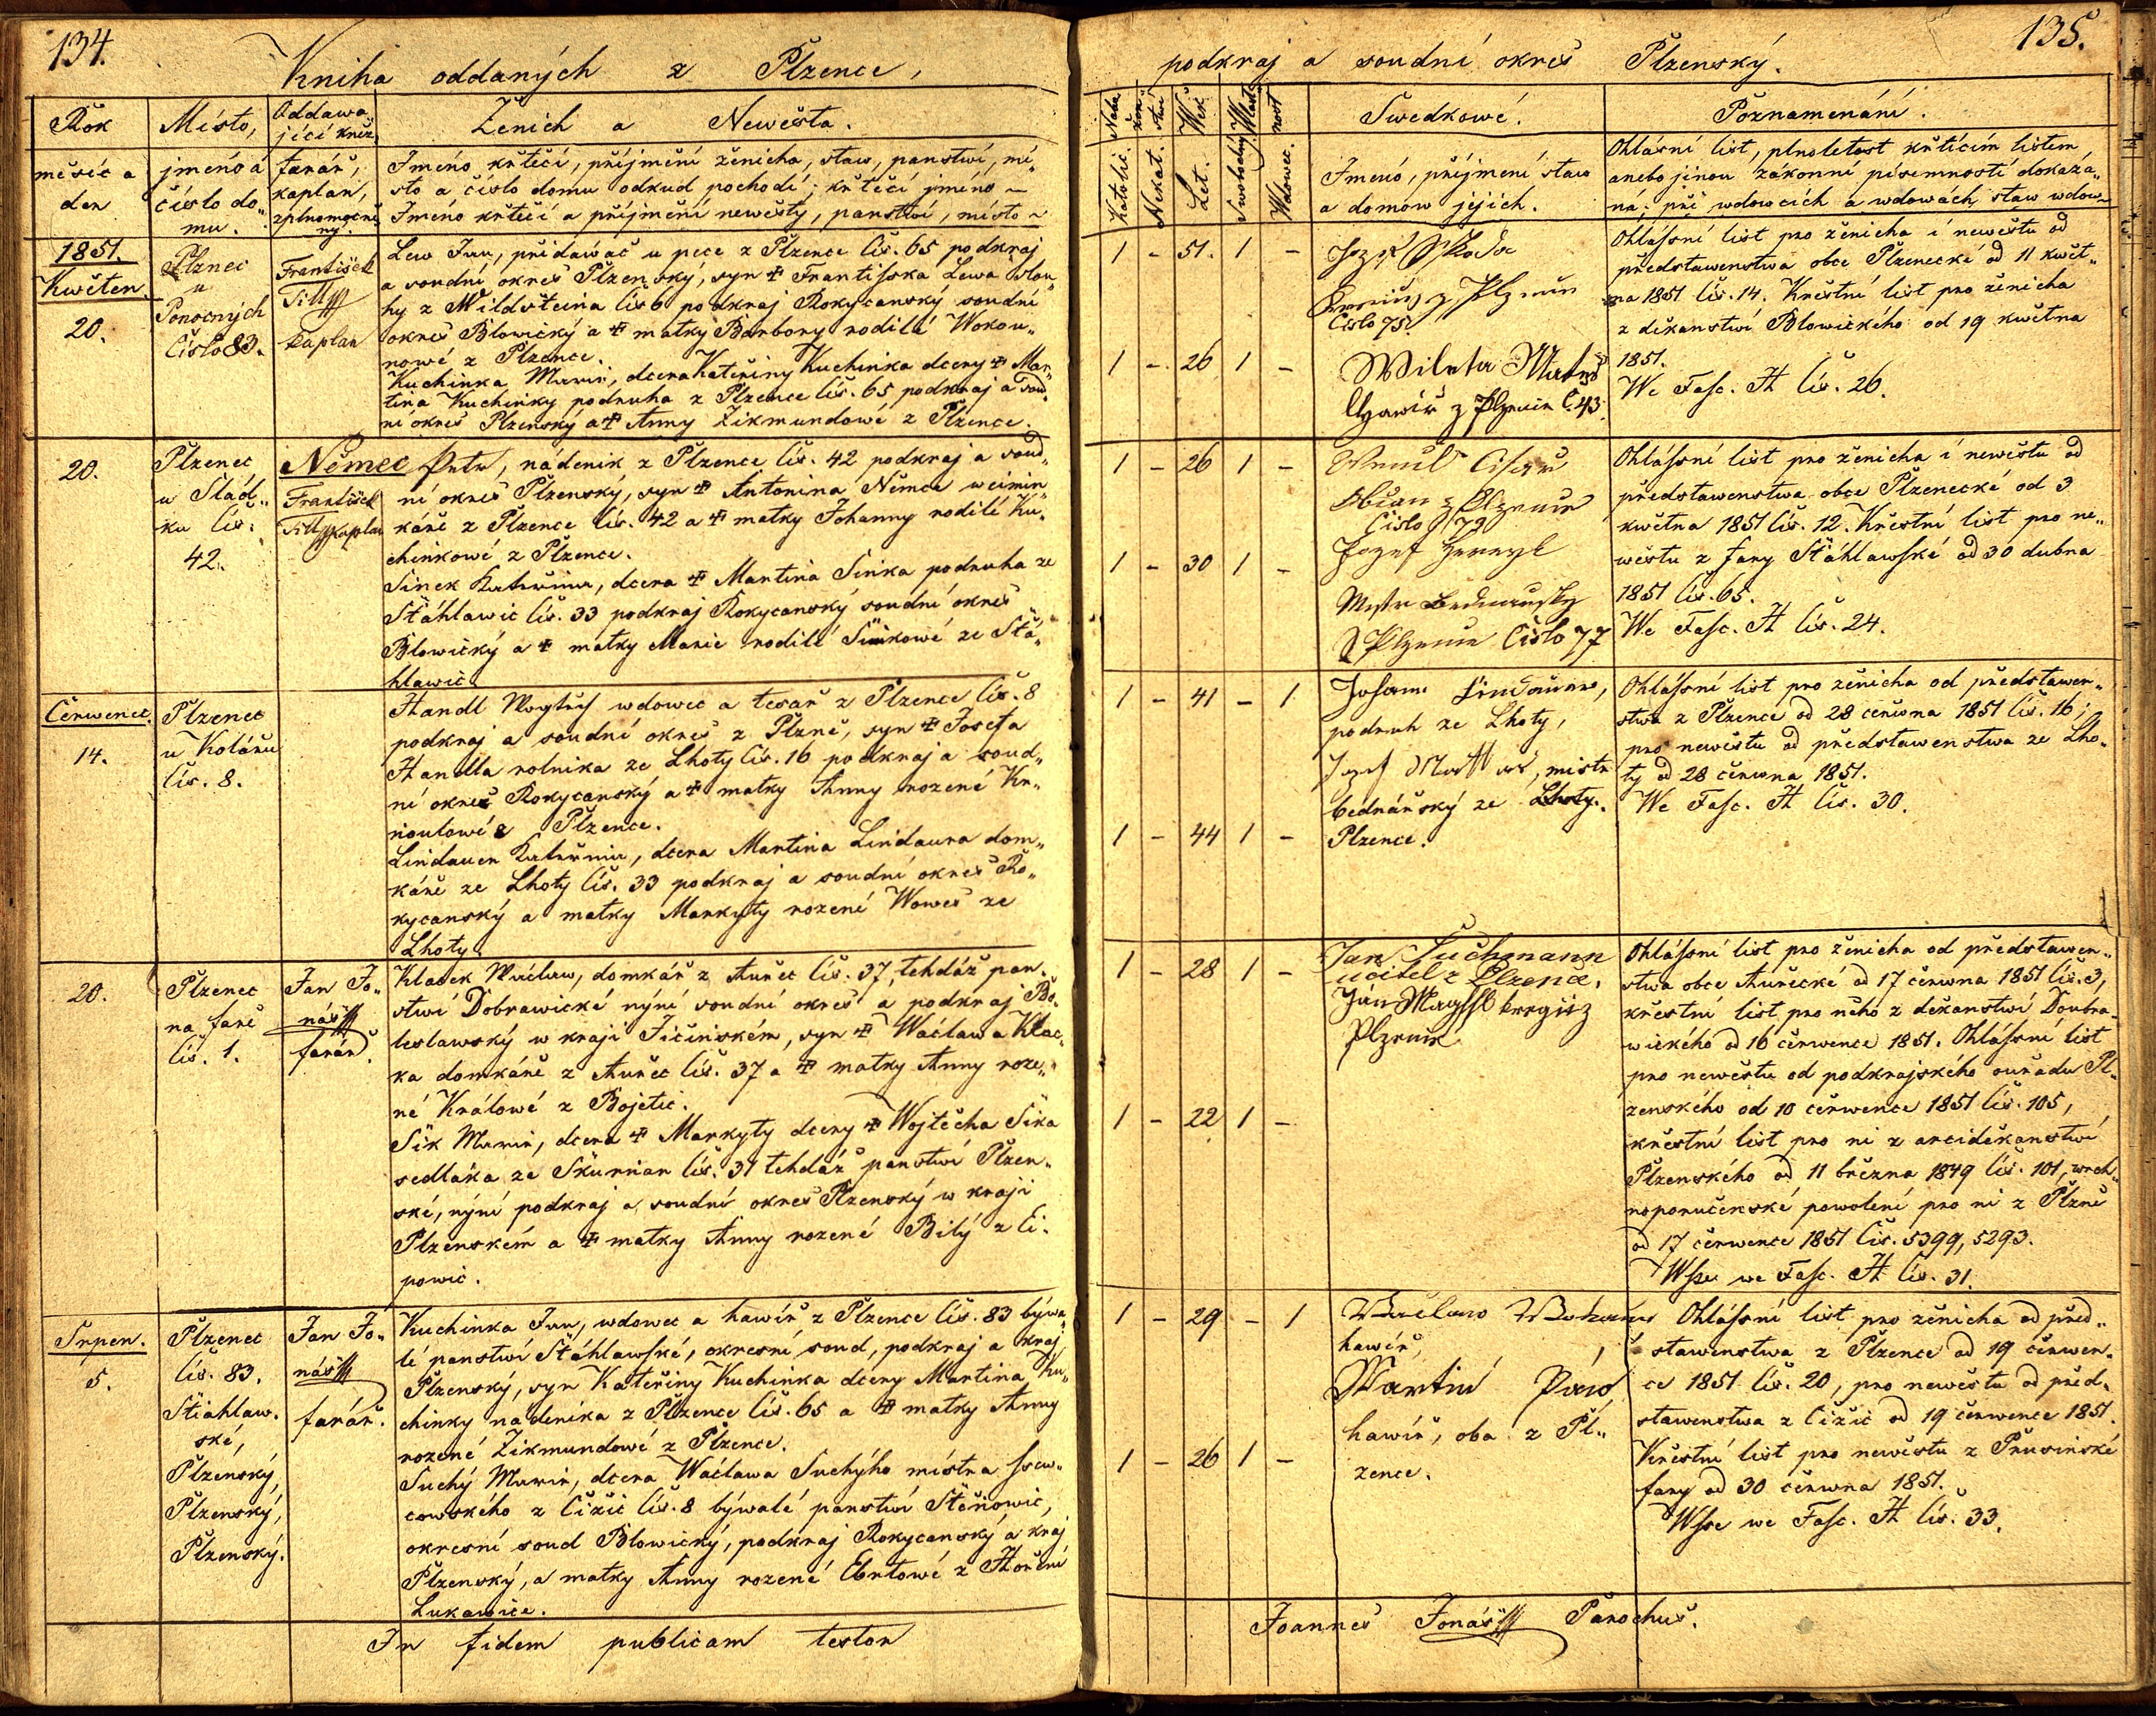 134.
Kniha oddaných z Plzence,
Rok
měsíc a
den
Místo,
jméno a
číslo do„
mu.
Oddawa
jící kněz
farář,
kaplan,
zplnomocně
ný.
Ženich a Newěsta.
Jméno křtěcí, příjmění ženicha, staw, panstwí, mí„
sto a číslo domu odkud pochodí; křtěcí jméno ~
Jméno křtěcí a příjmění newěsty, panstwí, místo ~
1851.
Kwěten
20.
Plznec
u
Ponocných
Číslo 83.
František
Tilly
kaplan
Lew Jan, přidawač u pece z Plzence čís. 65 podkraj
a soudní okres Plzenský, syn ☩ Frantisska Lewa slou„
hy z Wildšteina čís 6 podkraj Rokycanský soudní
okres Blowický a ☩ matky Barbory rodilé Wokou„
nowé z Plzence.
Kuchinka Marie, dcera Kateřiny Kuchinka dcery ☩ Mar„
tina Kuchinky podruha z Plzence čís. 65 podkraj a soud„
ní okres Plzenský a ☩ Anny Zikmundowé z Plzence.
20.
Plzenec
u Slád„
ku čís.
42.
František
Tilly kaplan
Němec Petr, nádenik z Plzence čís. 42 podkraj a soud„
ní okres Plzenský, syn ☩ Antonina Němca weimin„
káře z Plzence čís. 42 a ☩ matky Johanny rodilé Ku„
chinkowé z Plzence.
Sinek Kateřina, dcera ☩ Martina Sinka podruha ze
Stáhlawic čís. 33 podkraj Rokycanský soudní okres
Blowický a ☩ matky Marie rodilé Sinkowé ze Stá„
hlawic.
Čerwenec.
14.
Plzenec
u Kolářu
čís. 8.
Handl Wogtěch wdowec a tesař z Plzence čís. 8
podkraj a soudní okres z Plzně, syn ☩ Josefa
Handla rolnika ze Lhoty čís. 16 podkraj a soud„
ní okres Rokycanský a ☩ matky Anny rozené Kr„
noutowé z Plzence.
Lindauer Kateřina, dcera Martina Lindaura dom„
káře ze Lhoty čís. 33 podkraj a soudní okres Ro„
kycanský a matky Markyty rozené Wowes ze
Lhoty.
20.
Plzenec
na faře
čís. 1.
Jan Jo„
náš
farář.
Klacek Wáclaw, domkář z Auřec čís. 37, tehdáž pan„
stwí Dobrawické nýní soudní okres a podkraj Bo„
leslawský w kraji Jičinském, syn ☩ Wáclawa Klac„
ka domkáře z Auřec čís. 37 a ☩ matky Anny roze„
né Králowé z Bojetic.
Sík Marie, dcera ☩ Markyty dcery ☩ Wojtěcha Síka
sedláka ze Skurnian čís. 31 tehdáž panstwí Plzen„
ské, nýní podkraj a soudní okres Plzenský w kraji
Plzenském a ☩ matky Anny rozené Bílý z Ei„
powic.
Srpen.
5.
Plzenec
čís. 83.
Stiahlaw„
ské,
Plzenský,
Plzenský,
Plzenský.
Jan Jo„
náš
farář.
Kuchinka Jan, wdowec a hawíř z Plzence čís. 83 býwa„
lé panstwí Stáhlawské, okresní soud, podkraj a kraj
Plzenský, syn Kateřiny Kuchinka dcery Martina Ku„
chinky nádenika z Plzence čís. 65 a ☩ matky Anny
rozené Zikmundowé z Plzence.
Suchý Marie, dcera Wáclawa Suchýho místra ssew„
cowského z Čižic čís. 8 býwalé panstwí Stěňowic,
okresní soud Blowický, podkraj Rokycanský a kraj
Plzenský, a matky Anny rozené Ebrtowé z Hořeni
Lukawice.
In fidem publicam testor
135.
podkraj a soudní okres Plzenský.
Nábo
žen
stwí
Katolic.
Nekat.
Wěk
Let.
Wlast
nost
Swobodný
Wdowec.
Swedkowé.
Jméno, příjmění staw
a domow jejich.
Poznamenání.
Ohlásní list, plnoletost křtícím listem
anebo jinou zákonní písemností dokáza„
ná: při wdowcích a wdowách staw wdow~
1 - 51. 1 -
Jozef Skoda
z Plzence
Číslo 75.
Ohlássní list pro ženicha i newěstu od
představenstwa obce Plzenecké od 11 kwět„
na 1851 čís. 14. Křestní list pro ženicha
z děkanstwí Blowického od 19 kwětna
1851.
We Fasc. H čís. 26.
1 - 26 1 -
Wileta Matěg
Hawíř z Plzence Č. 43.
20.
1 - 26 1 -
Občan z Plzence
Číslo 79
Ohlássní list pro ženicha i newěstu od
představenstwa obce Plzenecké od 3
kwětna 1851 čís. 12. Křestní list pro ne„
wěstu z fary Stáhlawské od 30 dubna
1851 čís. 65.
We Fasc. H čís. 24.
1 - 30 1 -
Jozef
Mistr Bednarsky
z Plzence Číslo 77
1 - 41 - 1
Johann Lindauer,
podruh ze Lhoty,
Jozef, mistr
bednářský ze Lhoty.
Plzence.
Ohlássní list pro ženicha od představen„
stwa z Plzence od 28 čerwna 1851 čís. 16;
pro newěstu od představenstwa ze Lho„
ty od 28 čerwna 1851.
We Fasc. H čís. 30.
1 - 44 1 -
1 - 28 1 -
Jan Suchmann
učitel z Plzence.
Ján kregčiz
Plzence
Ohlássní list pro ženicha od představen„
stwa obce Auřecké od 17 čerwna 1851 čís. 3,
křestní list pro něho z děkanstwí Doubra„
wického od 16 čerwence 1851. Ohlássní list
pro newěstu od podkrajského ouřadu Pl„
zenského od 10 čerwence 1851 čís. 105,
křestní list pro ni z arciděkanstwí
Plzenského od 11 března 1849 čís. 101, wrch„
noporučenské powolení pro ni z Plzně
od 17 čerwence 1851 čís. 5399, 5293.
Wsse we Fasc. H čís. 31.
1 - 22 1 -
1 - 29 - 1
Wáclaw
hawíř,
Martin Páw
hawíř, oba z Pl„
zence.
Ohlássní list pro ženicha od před„
stawenstwa z Plzence od 19 čerwen„
ce 1851 čís. 20, pro newěstu od před„
stawenstwa z Čižic od 19 čerwence 1851.
Křestní list pro newěstu z Prusinské
fary od 30 čerwna 1851.
Wsse we Fasc. H čís. 33.
1 - 26 1 -
Joannes Jonáš Parochus.